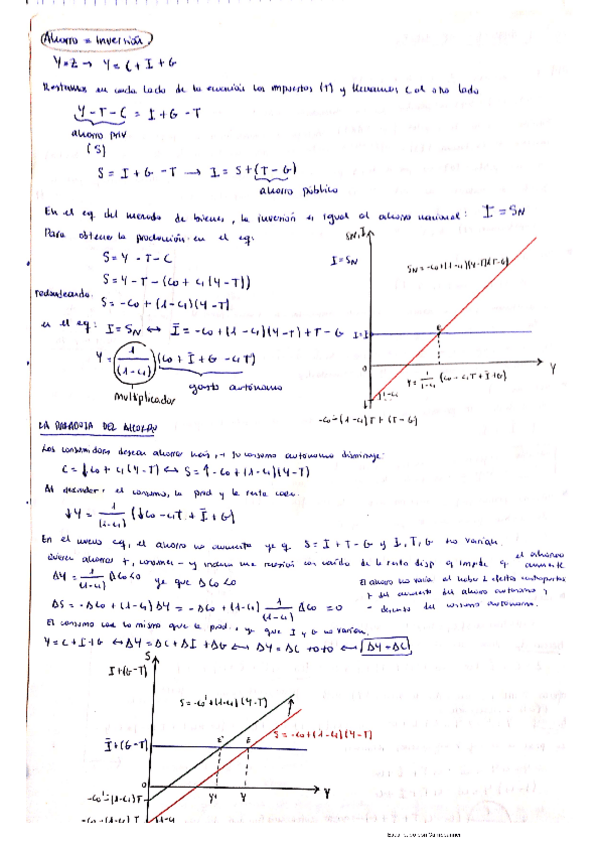 Ahorro = Inversión
Y=Z → Y = C + I + G
Restamos en cada lado de la ecuación los impuestos (T) y llevamos C al otro lado
Y - T - C = I + G - T
ahorro priv
(S)
S = I + G - T → I = S + (T - G)
ahorro público
En el eq. del mercado de bienes, la inversión es igual al ahorro nacional: I = SN
Para obtener la producción en el eq:
S = Y - T - C
S = Y - T - (C0 + C1 (Y - T))
S = -C0 + (1 - C1)(Y - T)
en el eq: I = SN ↔ Ī = -C0 + (1 - C1)(Y - T) + T - G
Y = 1/(1 - C1) (C0 + Ī + G - C1T)
Multiplicador
gasto autónomo
SN, I
I = SN
SN = -C0 + (1 - C1)(Y - T)(T - G)
E
0
Y
Y = 1/1-C1 (C0 - C1T + Ī + G)
1-C1
-C0 - (1 - C1)T + (T - G)
LA PARADOJA DEL AHORRO
Los consumidores desean ahorrar más, → su consumo autónomo disminuye:
C = ↓C0 + C1 (Y - T) ↔ S = ↑ - C0 + (1 - C1)(Y - T)
Al descender el consumo, la prod y la renta caen.
↓Y = 1/(1 - C1) (↓C0 - C1T + Ī + G)
En el nuevo eq, el ahorro no aumenta ya q S = I + T - G y I, T, G no varían.
quieren ahorrar +, consumen - y inducen una caída de la renta disp q impide q el ahorro aumente
ΔY = 1/(1 - C1) ΔC0 < 0 ya que ΔC0 < 0
El ahorro no varía al haber 2 efectos contrapuestos
+ del aumento del ahorro autónomo y
ΔS = -ΔC0 + (1 - C1) ΔY = -ΔC0 + (1 - C1) 1/(1 - C1) ΔC0 = 0
- descenso del consumo autónomo.
El consumo cae lo mismo que la prod. ya que I y G no varían.
Y = C + I + G ↔ ΔY = ΔC + ΔI + ΔG ↔ ΔY = ΔC + 0 + 0 ↔ ΔY = ΔC
S
I + (G - T)
S = -C0' + (1 - C1)(Y - T)
S = -C0 + (1 - C1)(Y - T)
Ī + (G - T)
E' E
0
Y' Y Y
-C0' - (1 - C1)T
-C0 - (1 - C1)T 1-C1